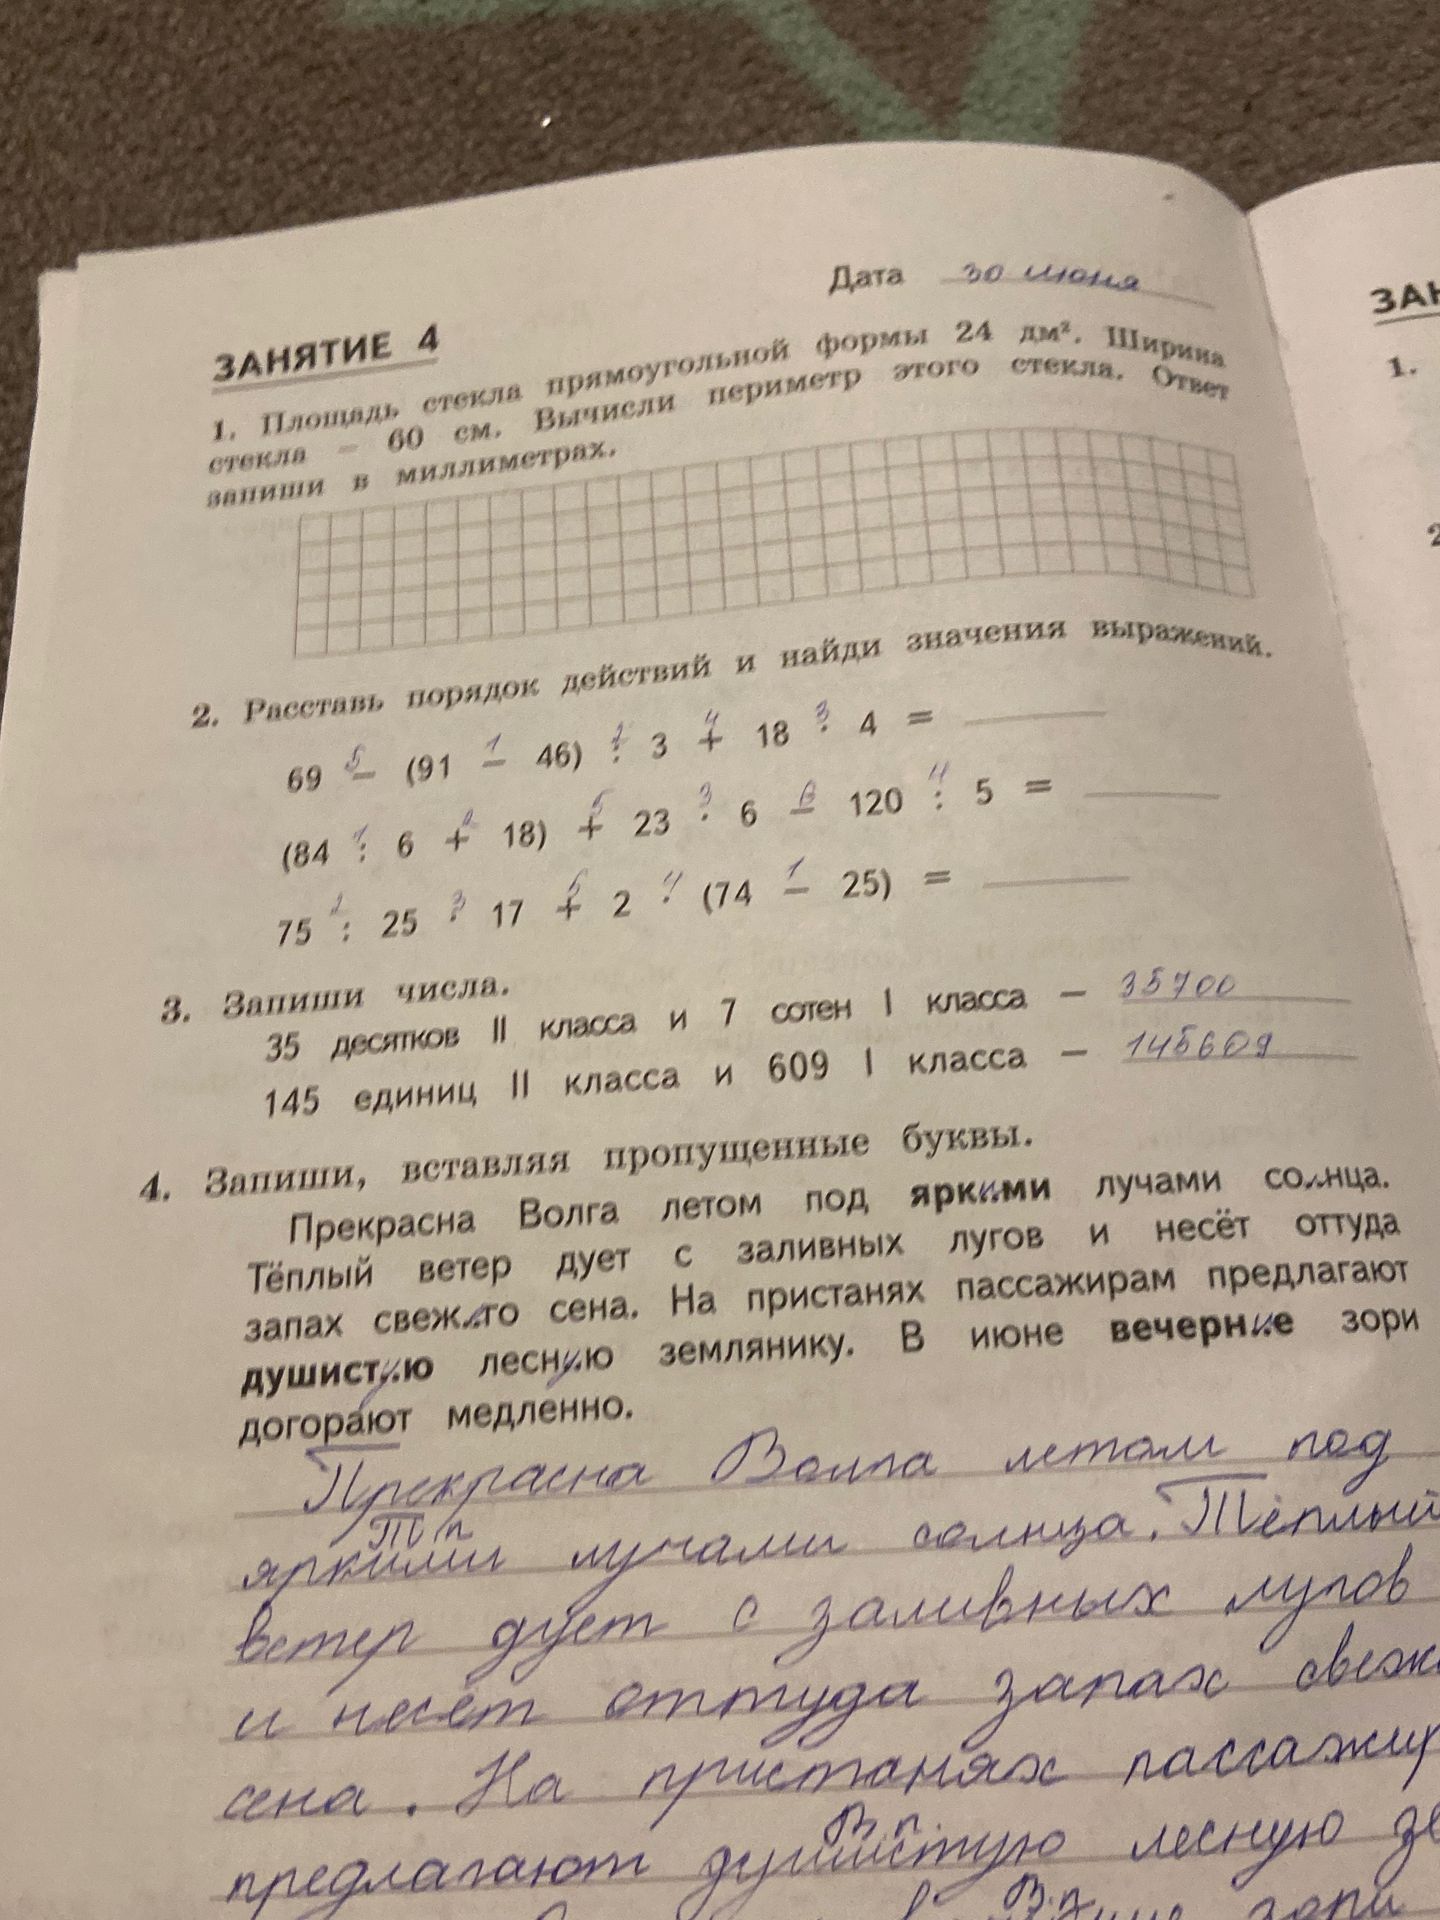 Дата 30 июня
ЗАНЯТИЕ 4
1. Площадь стекла прямоугольной формы 24 дм². Ширина
стекла – 60 см. Вычисли периметр этого стекла. Ответ
запиши в миллиметрах.
2. Расставь порядок действий и найди значения выражений.
5 1 2 4 3
69 – (91 – 46) : 3 + 18 · 4 =
1 2 5 3 6 4
(84 : 6 + 18) + 23 · 6 – 120 : 5 =
2 3 5 4 1
75 : 25 · 17 + 2 · (74 – 25) =
3. Запиши числа.
35 десятков II класса и 7 сотен I класса – 35700
145 единиц II класса и 609 I класса – 145609
4. Запиши, вставляя пропущенные буквы.
Прекрасна Волга летом под яркими лучами солнца.
Тёплый ветер дует с заливных лугов и несёт оттуда
запах свежего сена. На пристанях пассажирам предлагают
душистую лесную землянику. В июне вечерние зори
догорают медленно.
Прекрасна Волга летом под
Т п
яркими лучами солнца. Тёплый
ветер дует с заливных лугов
и несёт оттуда запах свеж
сена. На пристанях пассажир
В.п.
предлагают душистую лесную зе
В.п.
зори
ЗАН
1.
2